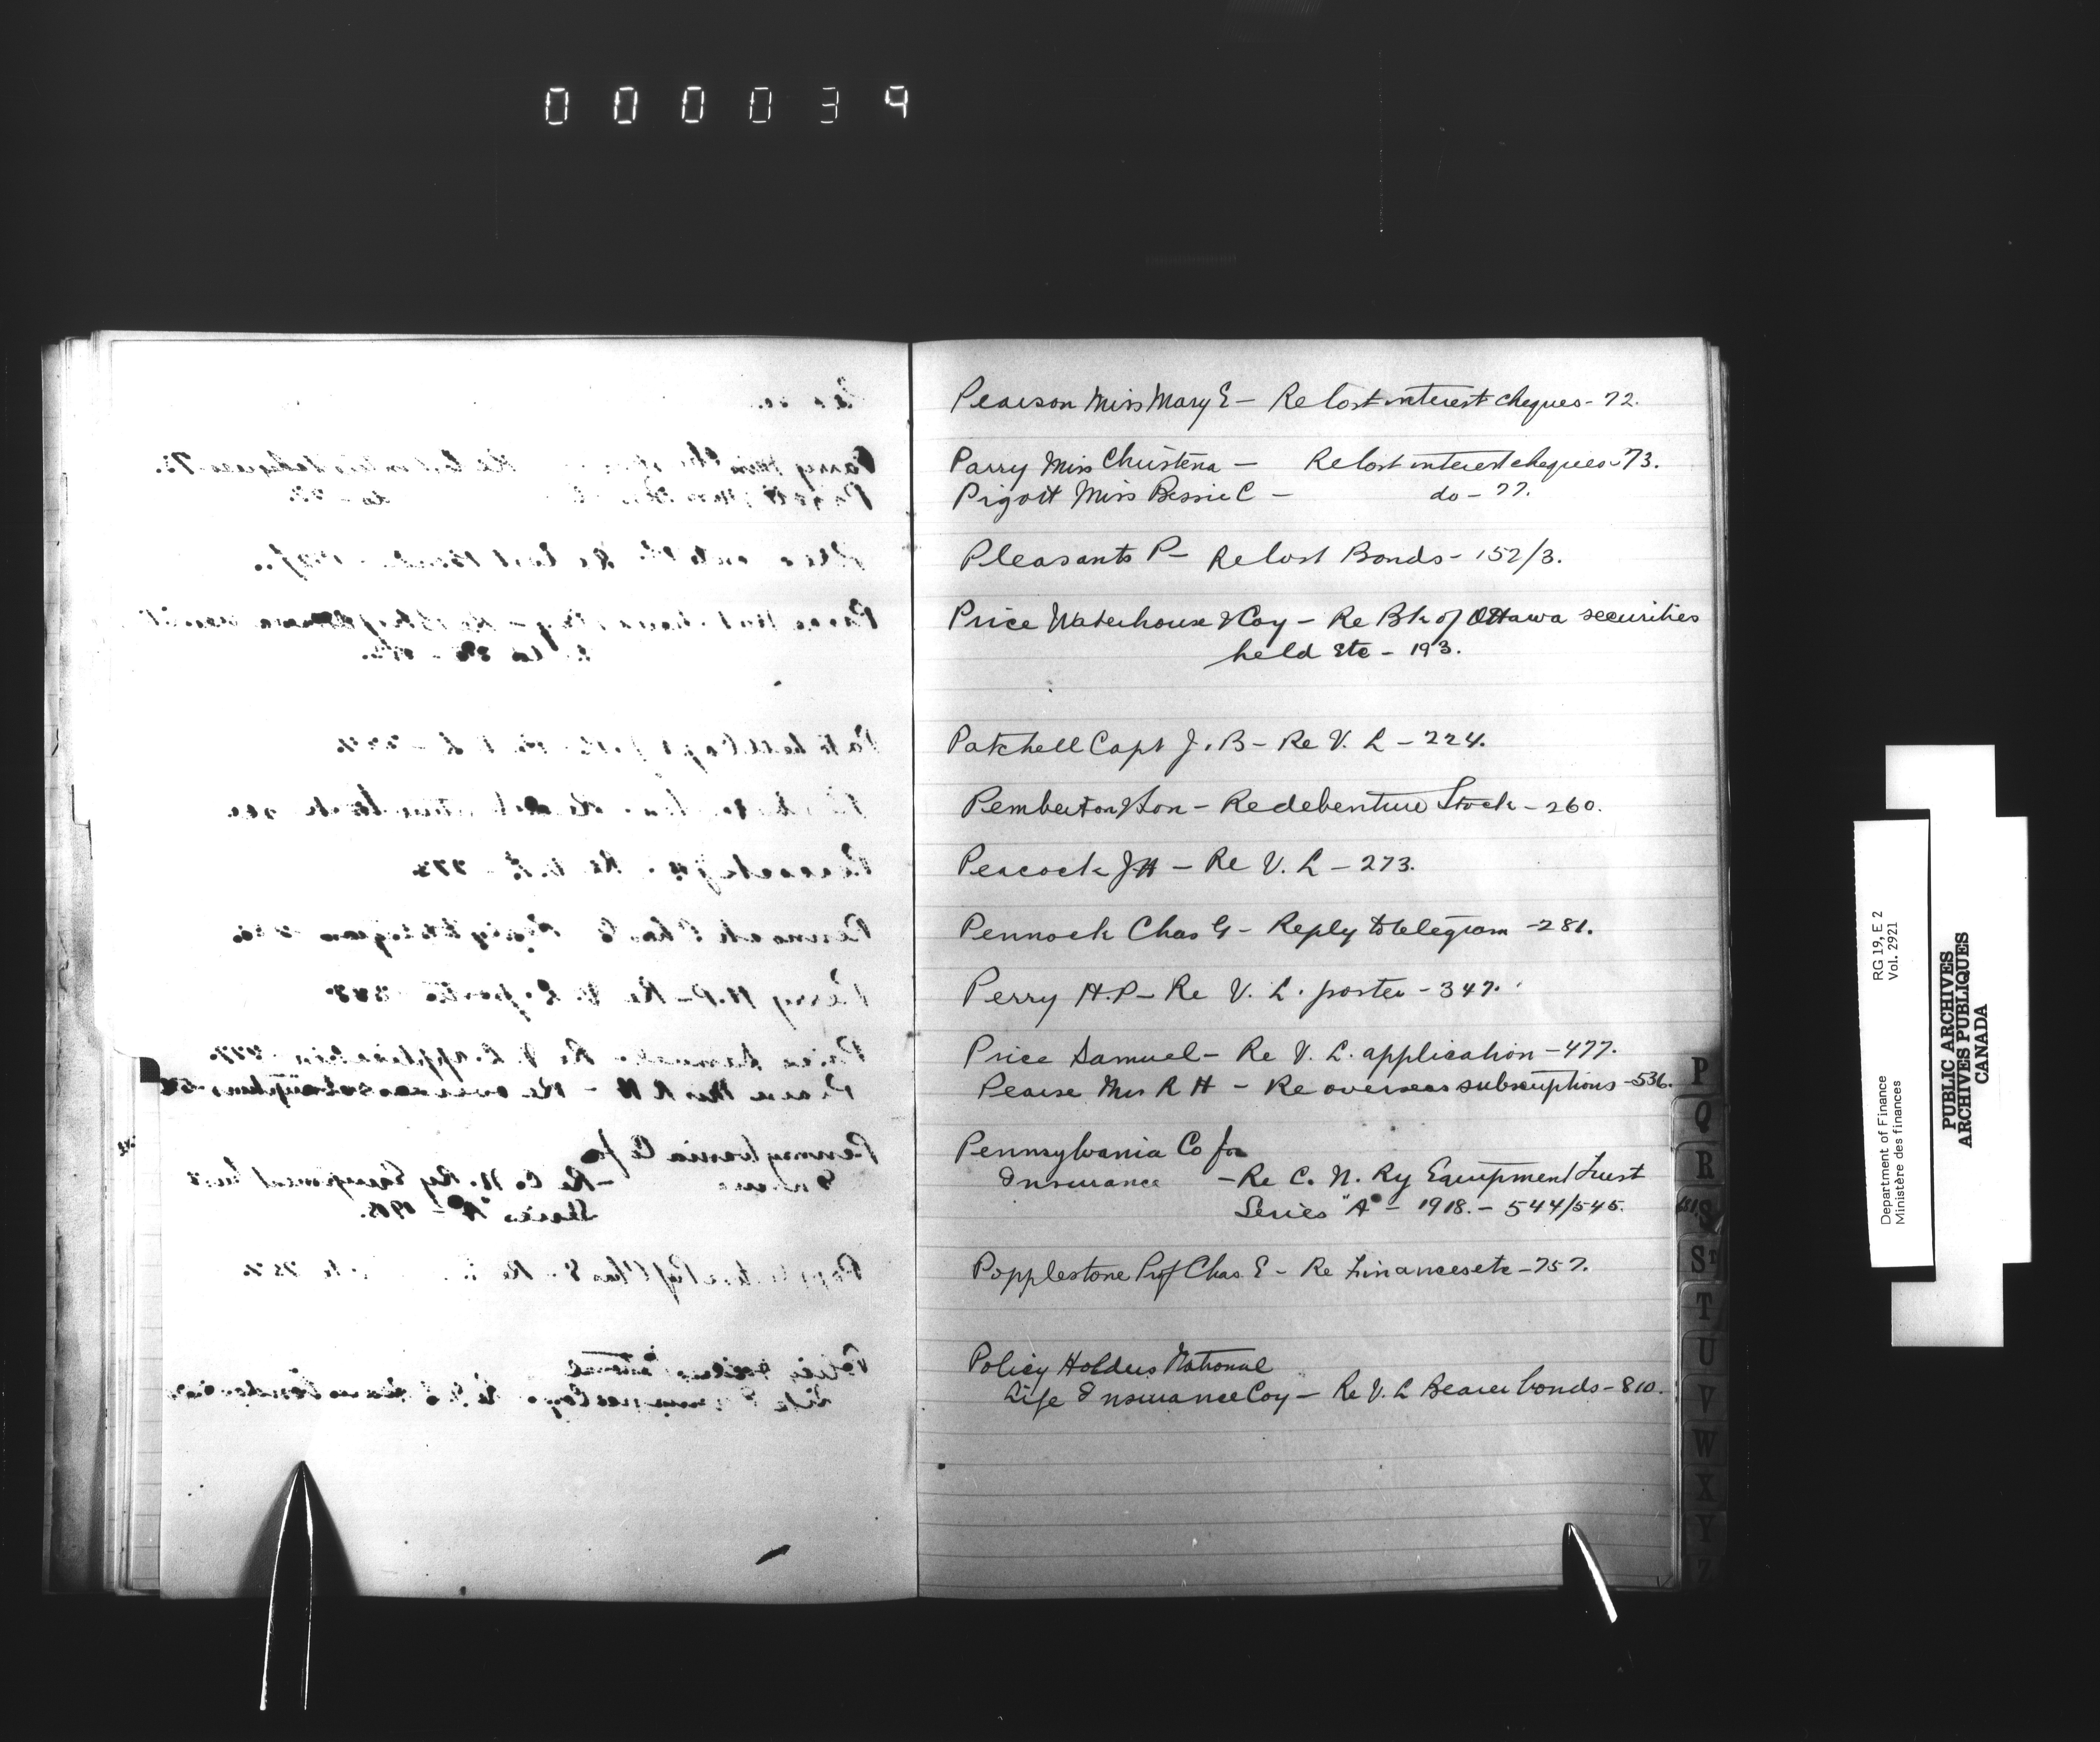 000039
Pearson Miss Mary E - Re lost interest cheques - 72.
Parry Miss Christena - Re lost interest cheques - 73.
Pigott Miss Bessie C - do - 77.
Pleasants P - Re lost Bonds - 152/3.
Price Waterhouse & Coy - Re Bk of Ottawa securities
held etc - 193.
Patchell Capt J. B - Re V. L - 224.
Pemberton & Son - Re debenture Stock - 260.
Peacock J H - Re V. L - 273.
Pennock Chas G - Reply to telegram - 281.
Perry H. P - Re V. L. poster - 347.
Price Samuel - Re V. L. application - 477.
Pearse Mrs R H - Re overseas subscriptions - 536.
Pennsylvania Co for
Insurance - Re C. N. Ry Equipment Trust
Series "A" - 1918. - 544/545.
Popplestone Prof Chas E - Re Finances etc - 757.
Policy Holders National
Life Insurance Coy - Re V. L Bearer bonds - 810.
P
Q
R
S
St
T
U
V
W
X
Y
Z
Department of Finance RG 19, E 2
Ministère des finances Vol. 2921
PUBLIC ARCHIVES
ARCHIVES PUBLIQUES
CANADA